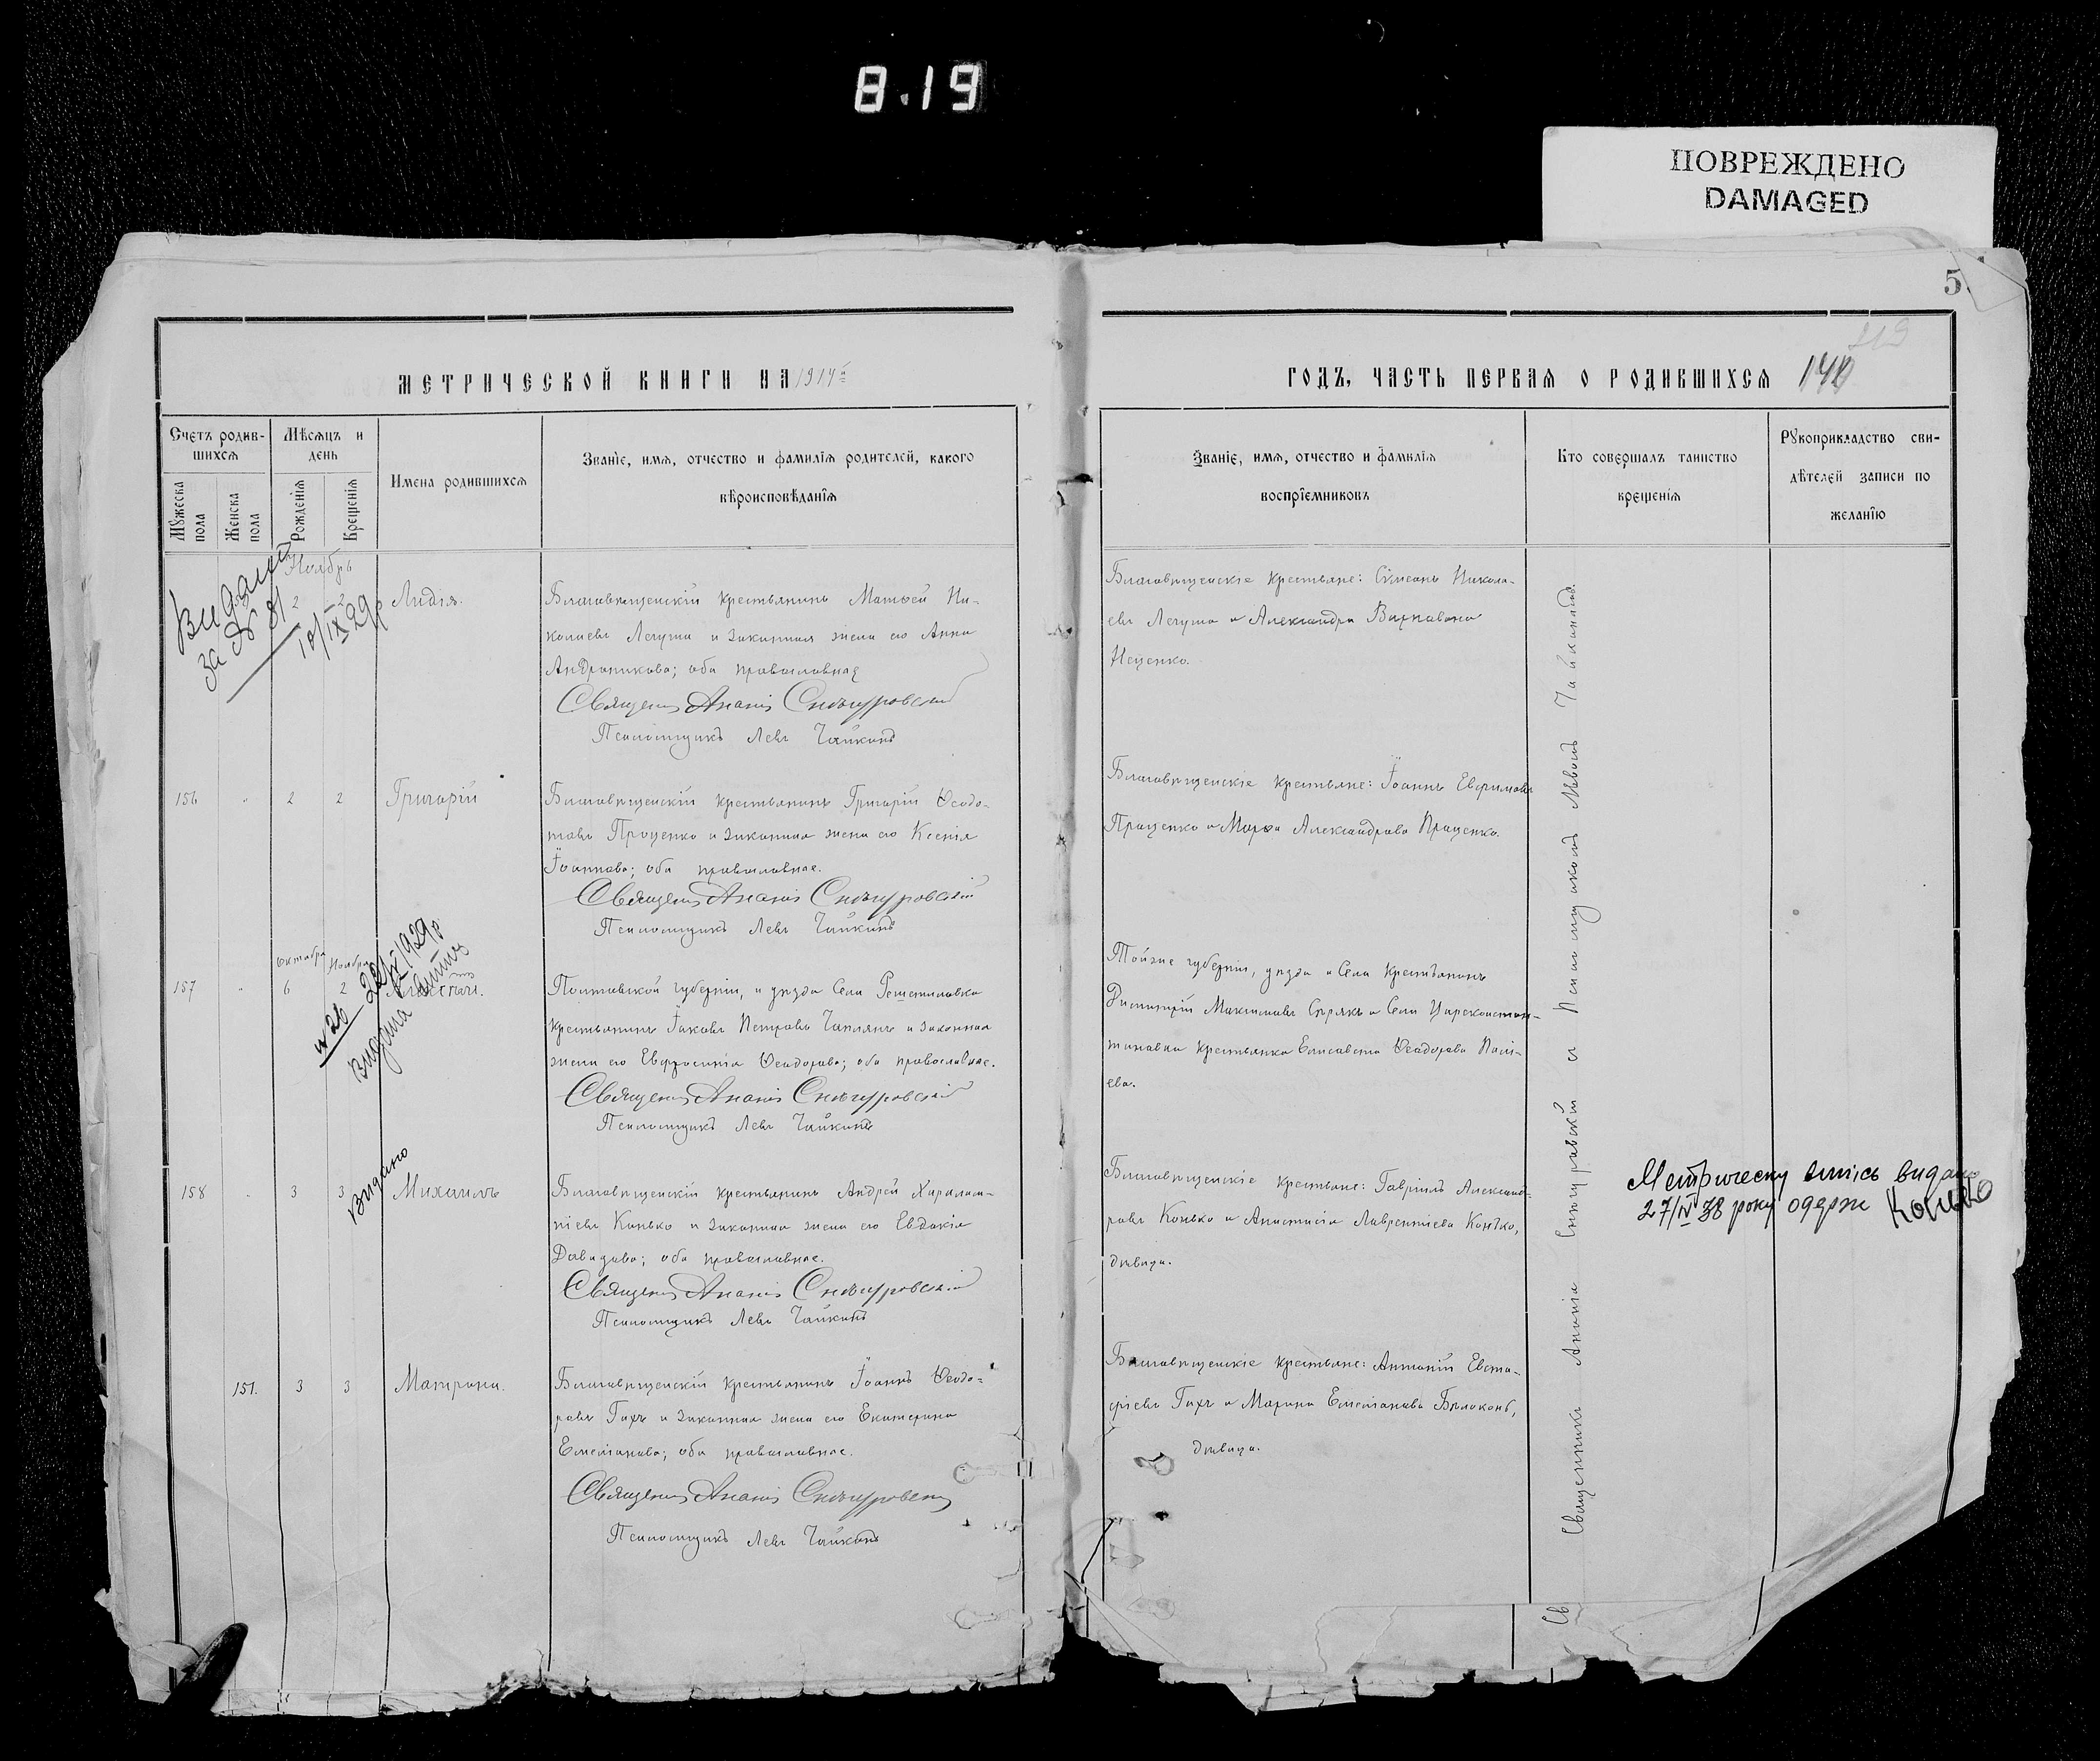 8.19
ПОВРЕЖДЕНО
DAMAGED
5
МЕТРИЧЕСКОЙ КНИГИ НА 1914й
ГОДЪ, ЧАСТЬ ПЕРВАЯ О РОДИВШИХСЯ
Счетъ родив-
шихся
Мужеска
пола
Женска
пола
Мѣсяцъ и
день
Рожденія
Крещенія
Имена родившихся
Званіе, имя, отчество и фамилія родителей, какого
вѣроисповѣданія
Званіе, имя, отчество и фамилія
воспріемниковъ
Кто совершалъ таинство
крещенія
Рукоприкладство сви-
дѣтелей записи по
желанію
Ноябрь
Видани
за № 81
10/IX 29р
2 2 Лидія.
Благовѣщенскій крестьянинъ Матѳей Ни-
колаевъ Легуша и законная жена его Анна
Андроникова; оба православные
Священ Ананій Снѣгуровскій
Псаломщикъ Левъ Чайкинъ
Благовѣщенскіе крестьяне: Сѵмеонъ Никола-
евъ Легуша и Александра Варнавова
Неценко.
156 " 2 2 Григорій
Благовѣщенскій крестьянинъ Григорій Ѳеодо-
товъ Проценко и законная жена его Ксенія
Іоаннова; оба православные.
Священ Ананій Снѣгуровскій
Псаломщикъ Левъ Чайкинъ
Благовѣщенскіе крестьяне: Іоаннъ Евфимовъ
Проценко и Марѳа Александрова Проценко.
Октября Ноября
157 " 6 2 Алексѣй.
№ 26 22/IV 1929р
Видана витяг
Полтавской губерніи, и уѣзда Села Решетиловки
крестьянинъ Іаковъ Петровъ Чаплянъ и законная
жена его Евфросинія Ѳеодорова; оба православные.
Священ Ананій Снѣгуровскій
Псаломщикъ Левъ Чайкинъ
Той же губерніи, уѣзда и Села крестьянинъ
Димитрій Максимовъ Сѣрякъ и Села Цареконстан-
тиновки крестьянка Елисавета Ѳеодорова
ева.
158 " 3 3 Михаилъ
Видано
Благовѣщенскій крестьянинъ Андрей Харалам-
піевъ Конько и законная жена его Евдокія
Давидова; оба православные.
Священ Ананій Снѣгуровскій
Псаломщикъ Левъ Чайкинъ
Благовѣщенскіе крестьяне: Гавріилъ Александ-
ровъ Конько и Анастасія Лаврентіева Конько,
дѣвица.
Метричну випись видано
27/IV 38 року одерж Конько
151. 3 3 Матрона.
Благовѣщенскій крестьянинъ Іоаннъ Ѳеодо-
ровъ Гихъ и законная жена его Екатерина
Емеліанова; оба православные.
Священ Ананій Снѣгуровскій
Псаломщикъ Левъ Чайкинъ
Благовѣщенскіе крестьяне: Антоній Евста-
фіевъ Гихъ и Марина Емеліанова Бѣлоконь,
дѣвица.
Священникъ Ананій Снѣгуровскій съ Псаломщикомъ Львомъ Чайкинымъ.
Св